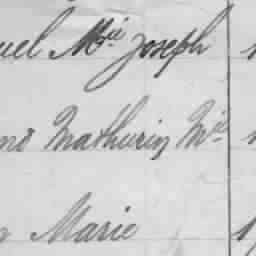 uel Mie Joseph
Mathurin Mie
Marie